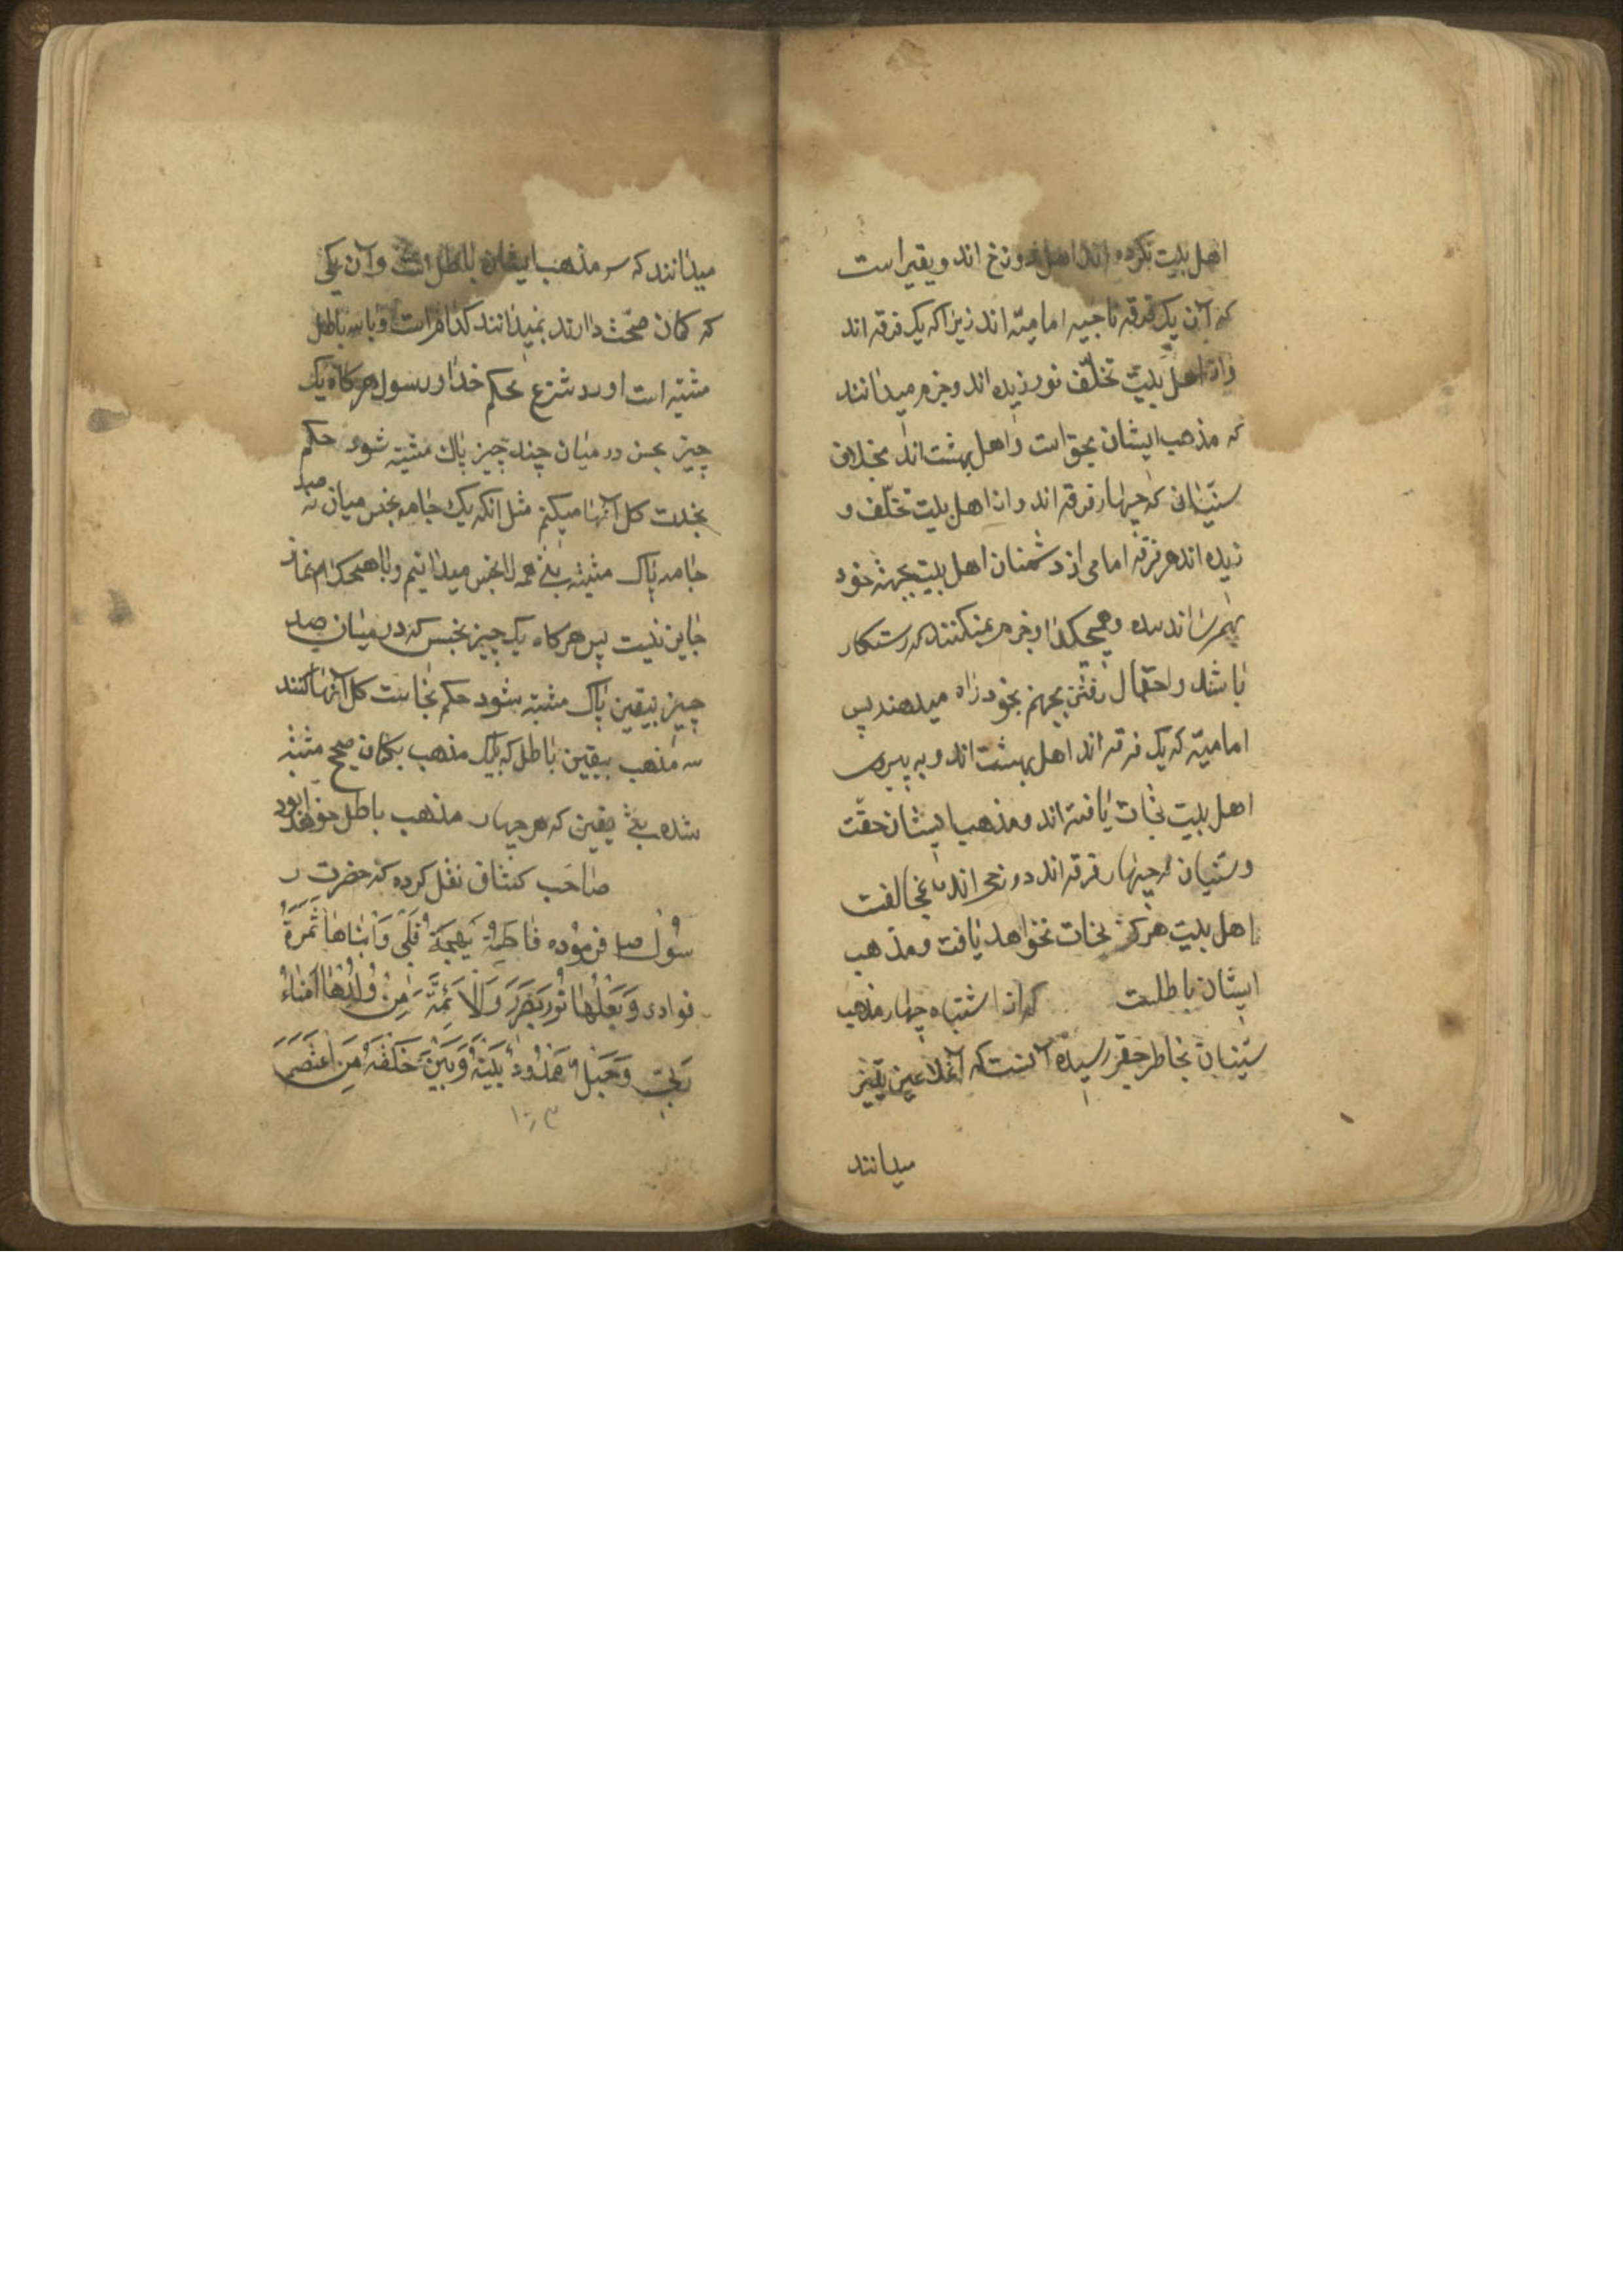 اهل بیت نکرده اند اهل دوزخ اند و یقیر است
که آن یک فرقه ناجیه امامیّه اند زیرا که یک فرقه اند
واز اهل بیت تخلّف نورزیده اند و جزم میدانند
که مذهب ایشان بحق است و اهل بهشت اند بخلاف
سنّیانی که چهار فرقه اند و از اهل بیت تخلّف و
زیده اند هر فرقه امامی از دشمنان اهل بیت بجهته خود
بهم رسانده و هیچکدام جزم نمیکنند که رستکار
باشد و احتمال رفتن بجهنم بخود راه میدهند پس
امامیّه که یک فرقه اند اهل بهشت اند و به پیروی
اهل بیت نجات یافته اند و مذهب ایشان حقّت
و سنّیان که چهار فرقه اند دوزخی اند با مخالفت
اهل بیت هرکز نجات نخواهد یافت و مذهب
ایشان باطلست که از اشتباه چهار مذهب
سنّیان بخاطر حقیر رسیده آنست که آنملاعین یقین
میدانند
میدانند که سه مذهب ایشان باطل است و آن یکی
که کمان صحّت دارند نمیدانند کدام است و با سه باطل
مشتبه است و در شرع بحکم خدا و رسول هرکاه یک
چیز نجس در میان چند چیز پاک مشتبه شود حکم
بنجاست کل آنها میکنیم مثل انکه یک جامه نجس میان نه صد
جامه پاک مشتبه یعنی همه را نجس میدانیم و با هیچکدام نماز
جایز نیست پس هرکاه یک چیز نجس که در میان صد
چیز بیقین پاک مشتبه شود حکم نجاست کل آنها کنند
سه مذهب بیقین باطل که با یک مذهب بکمان صحیح مشتبه
شده یعنی یقین که هر چهار مذهب باطل خواهد بود
صاحب کشاف نقل کرده که حضرت ر
سول صلی فرموده فاطمة بهجة قلبی و ابناها ثمرة
فوادی و بعلها نور بصری و الائمّة من ولدها امناء
ربی و حبل ممدود بینه و بین خلقه من اعتصم